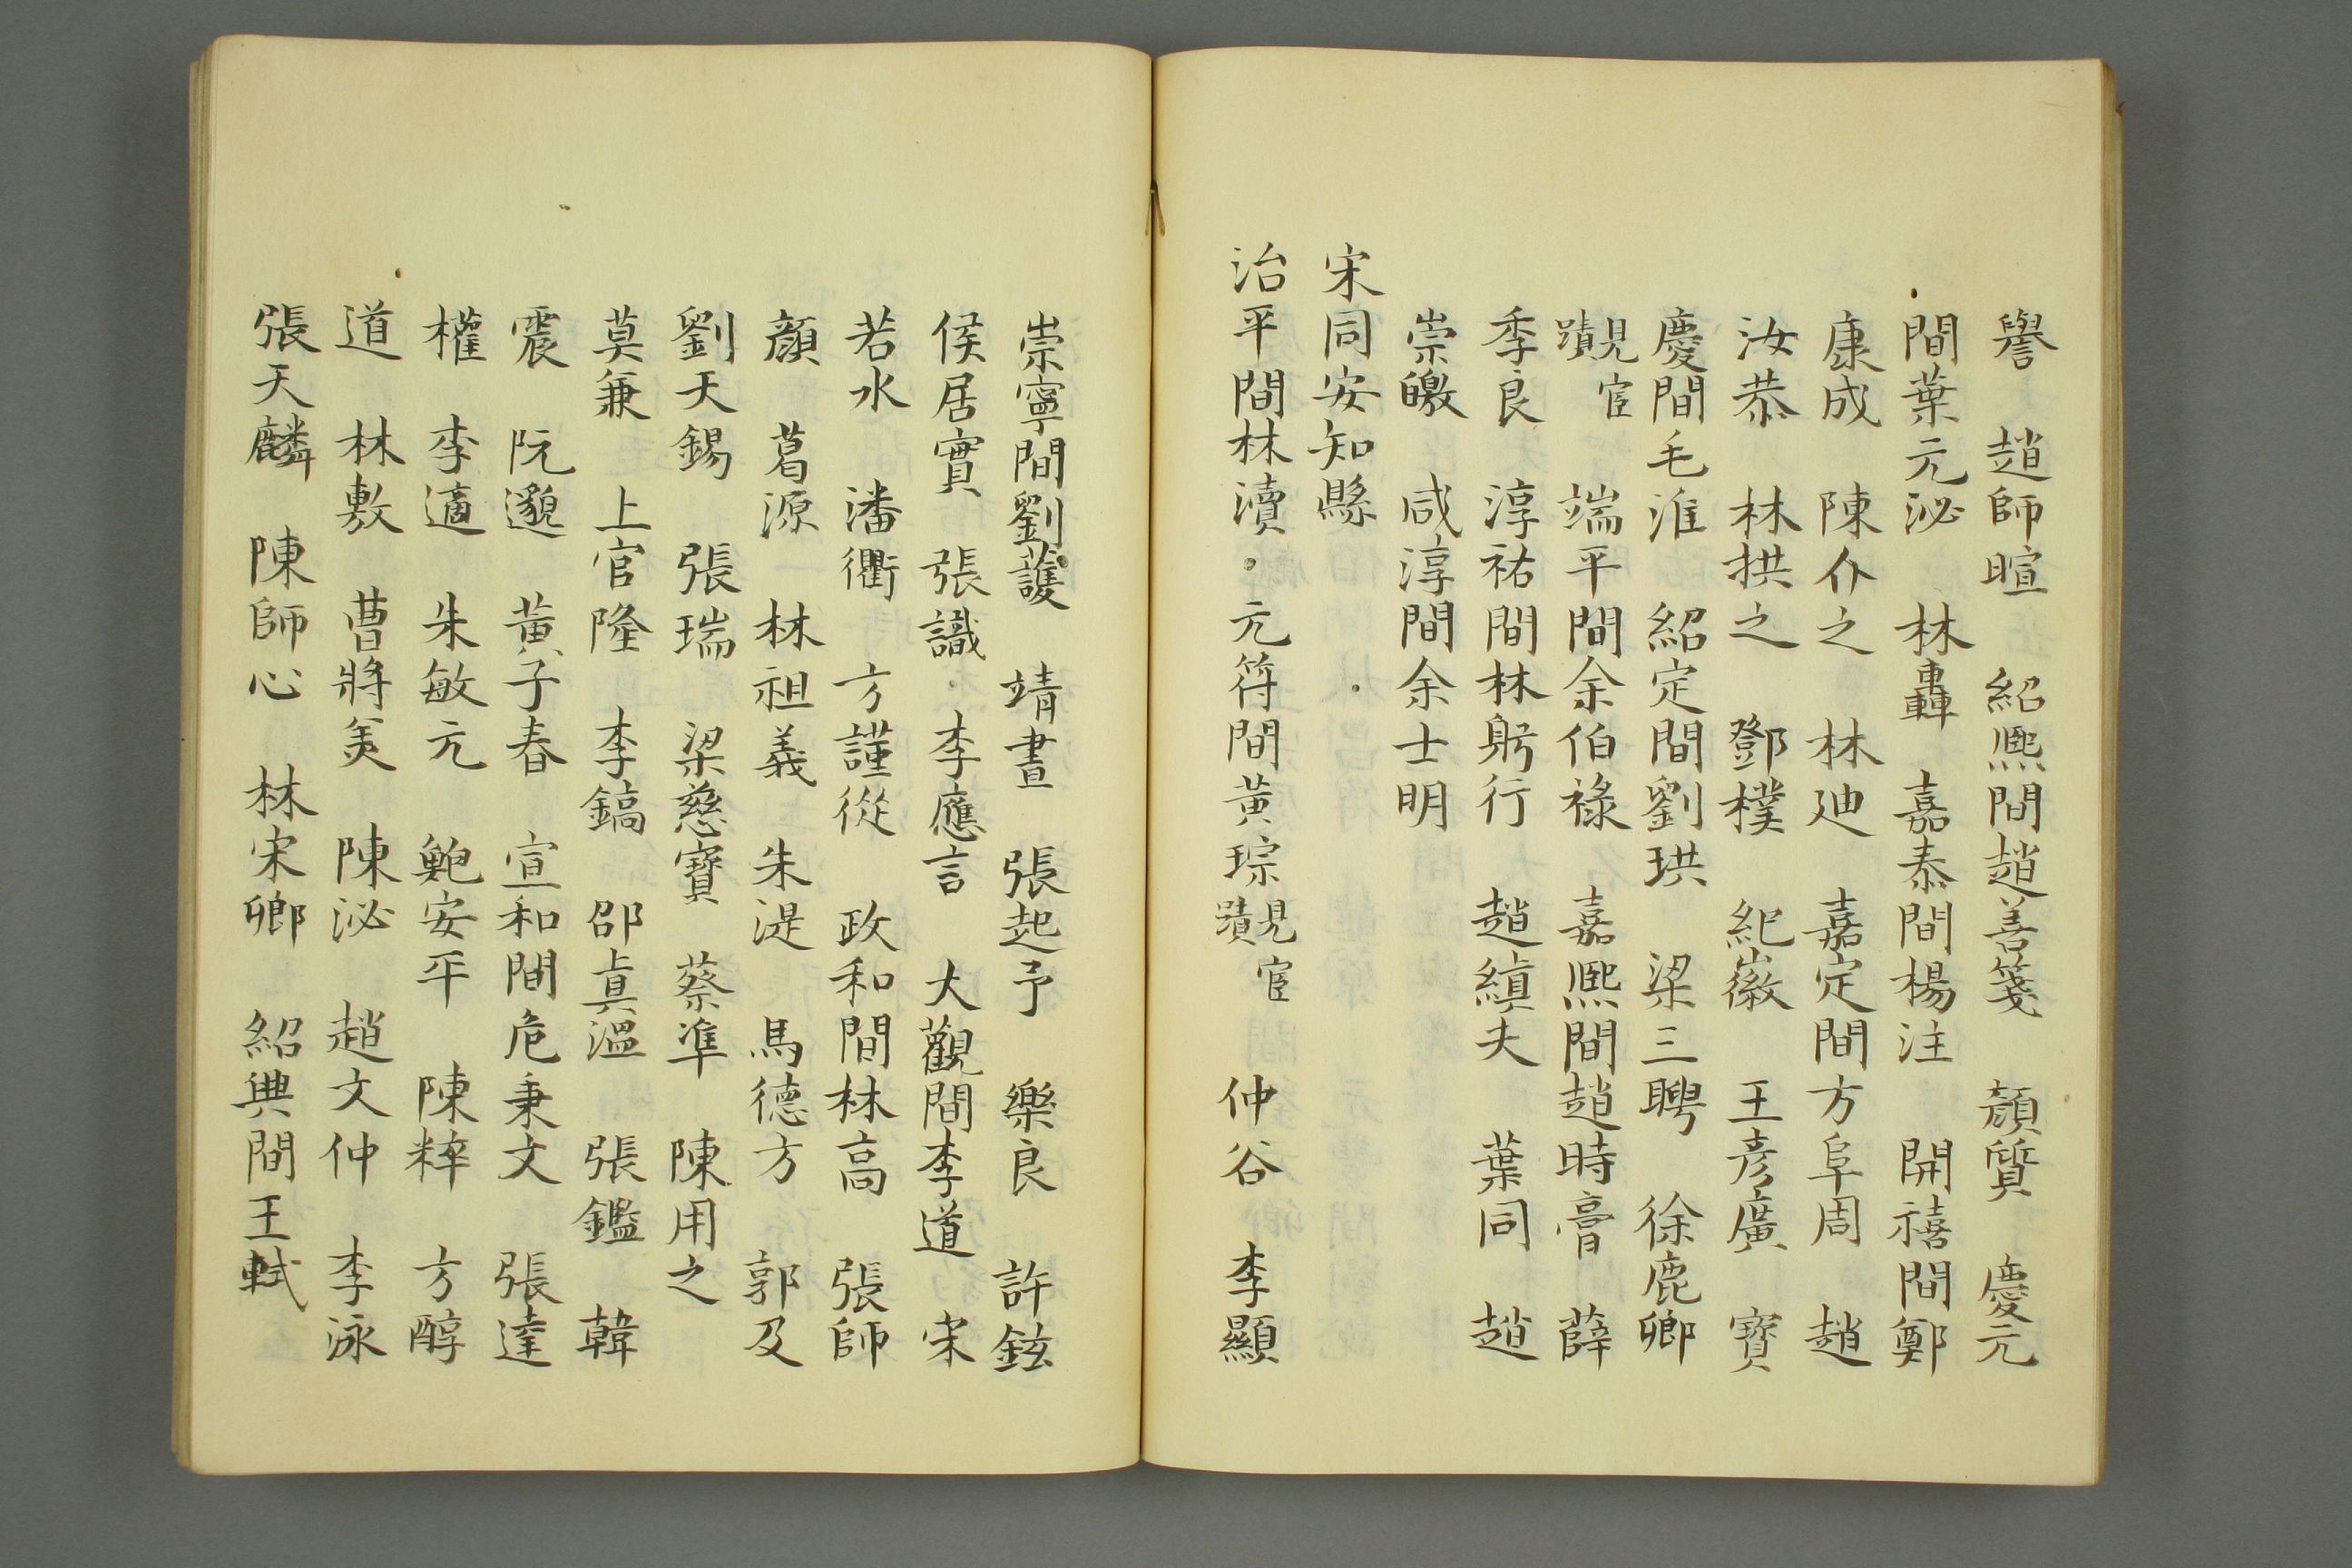 譽　趙師暄　紹熙間趙善箋　顏質　慶元
間葉元泌　林轟　嘉泰間楊注　開禧間鄭
康成　陳仆之　林廸　嘉定間方阜周　趙
汝恭　林拱之　鄧樸　紀㣲　王彥廣　寶
慶間毛淮　紹定間劉珙　梁三聘　徐鹿卿
見宦蹟　端平間余伯祿　嘉熙間趙時膏　薛
季良　淳祐間林躬行　趙縝夫　葉同　趙
崇皦　咸淳間余士明
宋同安知縣
治平間林瀆　元符間黃琮見宦蹟　仲谷　李顯
崇寧間劉蒦　靖晝　張起予　樂良　許鉉
侯居實　張識　李應言　大觀間李道　宋
若水　潘衢　方謹從　政和間林高　張師
顏　葛源　林祖義　朱湜　馬德方　郭及
劉天錫　張瑞　梁慈寶　蔡準　陳用之
莫兼　上官隆　李鎬　邵眞溫　張鑑　韓
震　阮邈　黃子春　宣和間危秉文　張達
權　李適　朱敏元　鮑安平　陳粹　方醇
道　林敷　曹將美　陳泌　趙文仲　李泳
張天麟　陳師心　林宋卿　紹興間王軾